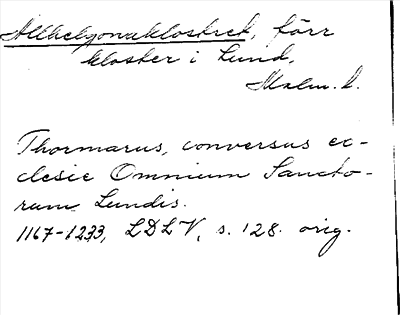 Allhelgonaklostret, förr
kloster i Lund,
Malm. l.
Thormarus, conversus ec-
clesie Omnium Sancto-
rum Lundis.
1167-1233, LDLV, s. 128. orig.